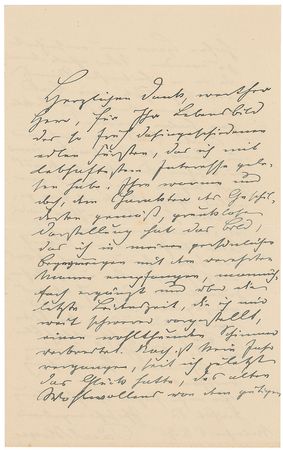 Herzlichen Dank, werther
Herr, für Ihr Lebensbild
des so früh dahingeschiedenen
edlen Fürsten, das ich mit
lebhaftestem Interesse gele-
sen habe. Ihre warme und
doch, dem Charakter des Geschil-
derten gemäß, prunklose
Darstellung hat das Bild,
das ich in meinen persönlichen
Begegnungen mit dem verehrten
Manne empfangen, mannich-
fach ergänzt und über die
letzte Leidenszeit, die ich mir
weit schwerer vorgestellt,
einen wohlthuenden Schimmer
verbreitet. Noch ist kein Jahr
vergangen, seit ich zuletzt
das Glück hatte, das alte
Wohlwollen von dem gütigen